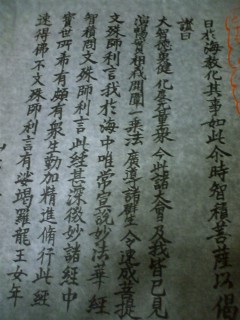 日於海教化其事如此尒時智積菩薩以偈
讃曰
大智德勇健 化度無量衆 今此諸大會 及我皆已見
演暢實相義 開闡一乘法 廣導諸衆生 令速成菩提
文殊師利言我於海中唯常宣說妙法華經
智積問文殊師利言此經甚深微妙諸經中
寶世所希有頗有衆生勤加精進脩行此經
速得佛不文殊師利言有娑竭羅龍王女年